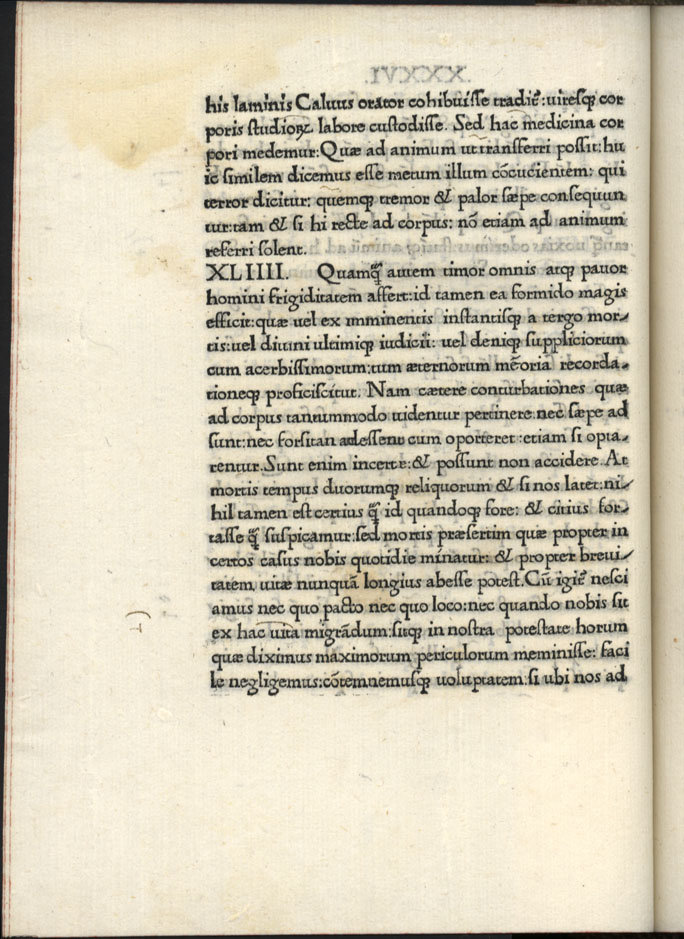 his laminis Caluus orator cohibuisse tradit̃:uiresqꝫ cor
poris studioꝝ labore custodisse. Sed hac medicina cor
pori medemur:Quæ ad animum ut transferri possit:hu
ic similem dicemus esse metum illum cõcucientem: qui
terror dicitur: quemqꝫ tremor & palor sæpe consequun
tur:tam & si hi recte ad corpus: nõ etiam ad animum
referri solent.
XLIIII. Quamqꝫ̃ autem timor omnis atqꝫ pauor
homini frigiditatem affert:id tamen ea formido magis
efficit:quæ uel ex imminentis instantisqꝫ a tergo mor-
tis:uel diuini ultimiqꝫ iudicii: uel deniqꝫ suppliciorum
cum acerbissimorum:tum æternorum mẽoria recorda-
tioneqꝫ proficiscitur. Nam cætere conturbationes quæ
ad corpus tantummodo uidentur pertinere:nec sæpe ad
sunt:nec forsitan adessent cum oporteret :etiam si opta-
rentur.Sunt enim incerte:& possunt non accidere. At
mortis tempus duorumqꝫ reliquorum & si nos latet:ni-
hil tamen est certius qꝫ̃ id quandoqꝫ fore: & citius for-
tasse qꝫ̃ suspicamur:sed mortis præsertim quæ propter in
certos casus nobis quotidie mĩnatur: & propter breui-
tatem uitæ nunquã longius abesse potest.Cũ igit̃ nesci
amus nec quo pacto nec quo loco:nec quando nobis sit
ex hac uita migrãdum:sitqꝫ in nostra potestate horum
quæ diximus maximorum periculorum meminisse: faci
le negligemus:cõtemnemusqꝫ uoluptatem:si ubi nos ad